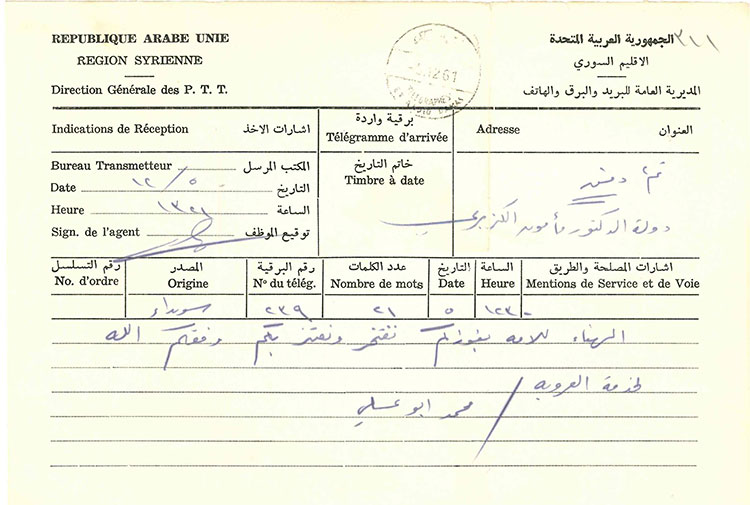 REPUBLIQUE ARABE UNIE
REGION SYRIENNE
Direction Générale des P. T. T.
61
الجمهورية العربية المتحدة ٣١١
الاقليم السوري
المديرية العامة للبريد والبرق والهاتف
Indications de Réception اشارات الاخذ
برقية واردة
Télégramme d'arrivée
Adresse العنوان
Bureau Transmetteur المكتب المرسل
Date ١٢/٥ التاريخ
Heure ١٣٢١ الساعة
Sign. de l'agent توقيع الموظف
خاتم التاريخ
Timbre à date
دمشق
دولة الدكتور مأمون الكزبري
رقم التسلسل المصدر رقم البرقية عدد الكلمات التاريخ الساعة اشارات المصلحة والطريق
No. d'ordre Origine N° du télég. Nombre de mots Date Heure Mentions de Service et de Voie
سويداء ٢٣٩ ٢١ ٥ ١٢٣٠
الهناء للامه بفوزكم نفتخر ونعتز بكم وفقكم الله
لخدمة العروبه / محمد ابو عسلي